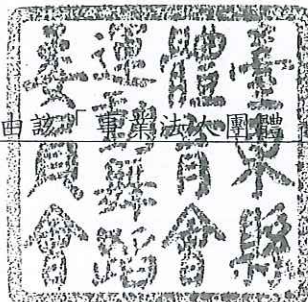 臺東縣
體育會
運動舞蹈
委員會
由該「事業法人團體